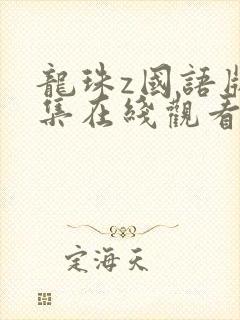 龍珠z國語
集在綫觀看
定海天